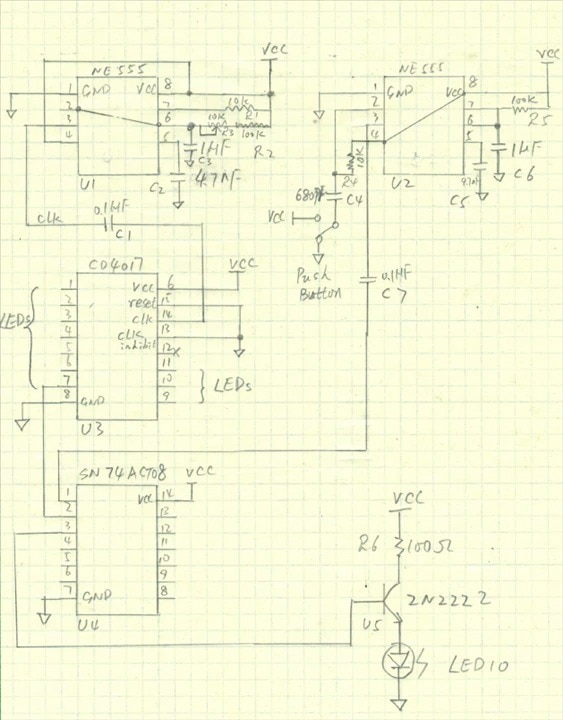 VCC
NE555
1 GND VCC 8
2 7
3 6
4 5
U1
10k
R1
10K
R3
100k
R2
1MF
C3
C2
47nF
clk
0.1MF
C1
NE555
VCC
1 GND VCC 8
2 7
3 6
4 5
U2
100K
R5
1MF
C6
47nF
C5
10K
R4
680PF
C4
VCC
Push
Button
0.1MF
C7
CD4017
VCC
1 VCC 6
2 reset 15
3 clk 14
4 clk 13
inhibit
5 12
6 11
7 10
8 GND 9
LEDs
LEDs
U3
SN74ACT08
VCC
1 VCC 14
2 13
3 12
4 11
5 10
6 9
7 GND 8
U4
VCC
R6 100Ω
2N2222
U5
LED10